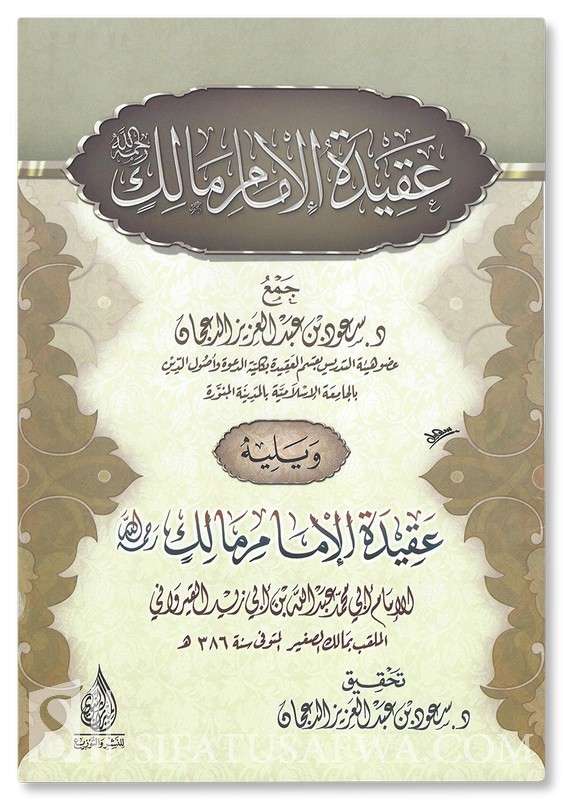 عَقِيدَةُ الإِمَامِ مَالِكٍ رَحِمَهُ اللَّه
جَمْعُ
د. سعود بن عبد العزيز الدعجان
عضو هيئة التدريس بقسم العقيدة بكلية الدعوة وأصول الدين
بالجامعة الإسلامية بالمدينة المنورة
وَيَلِيهُ
عَقِيدَةُ الإِمَامِ مَالِكٍ رحمه الله
للإمام أبي محمد عبد الله بن أبي زيد القيرواني
الملقب بمالك الصغير المتوفى سنة ٣٨٦ هـ
تَحْقِيق
د. سعود بن عبد العزيز الدعجان
للنشر والتوزيع
SIFATUSAFWA.COM